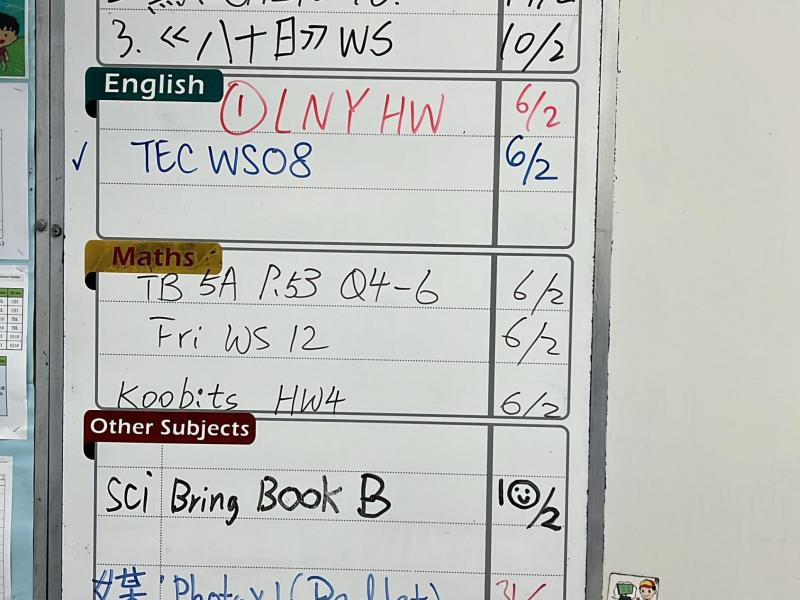 3. 《八十日》 WS 10/2
English
① LNY HW 6/2
✓ TEC WS08 6/2
Maths
TB 5A P.53 Q4-6 6/2
Fri WS 12 6/2
Koobits HW4 6/2
Other Subjects
Sci Bring Book B 10/2